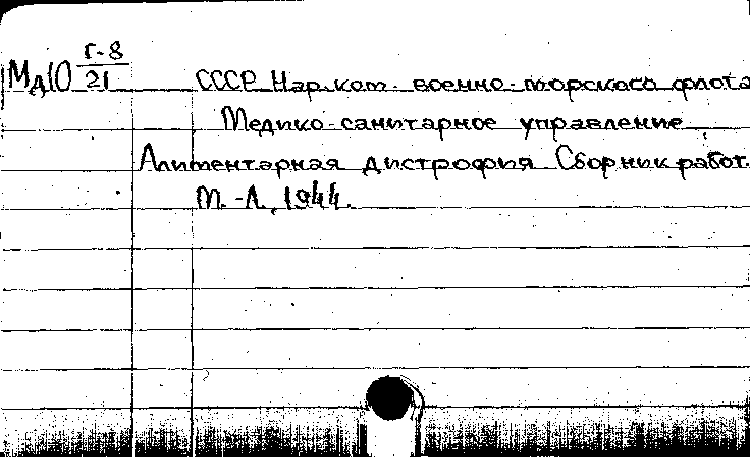 МД10 Г-8/21
СССР Нар. ком. военно-морского флота
Медико-санитарное управление
Алиментарная дистрофия Сборник работ.
М.-Л., 1944.